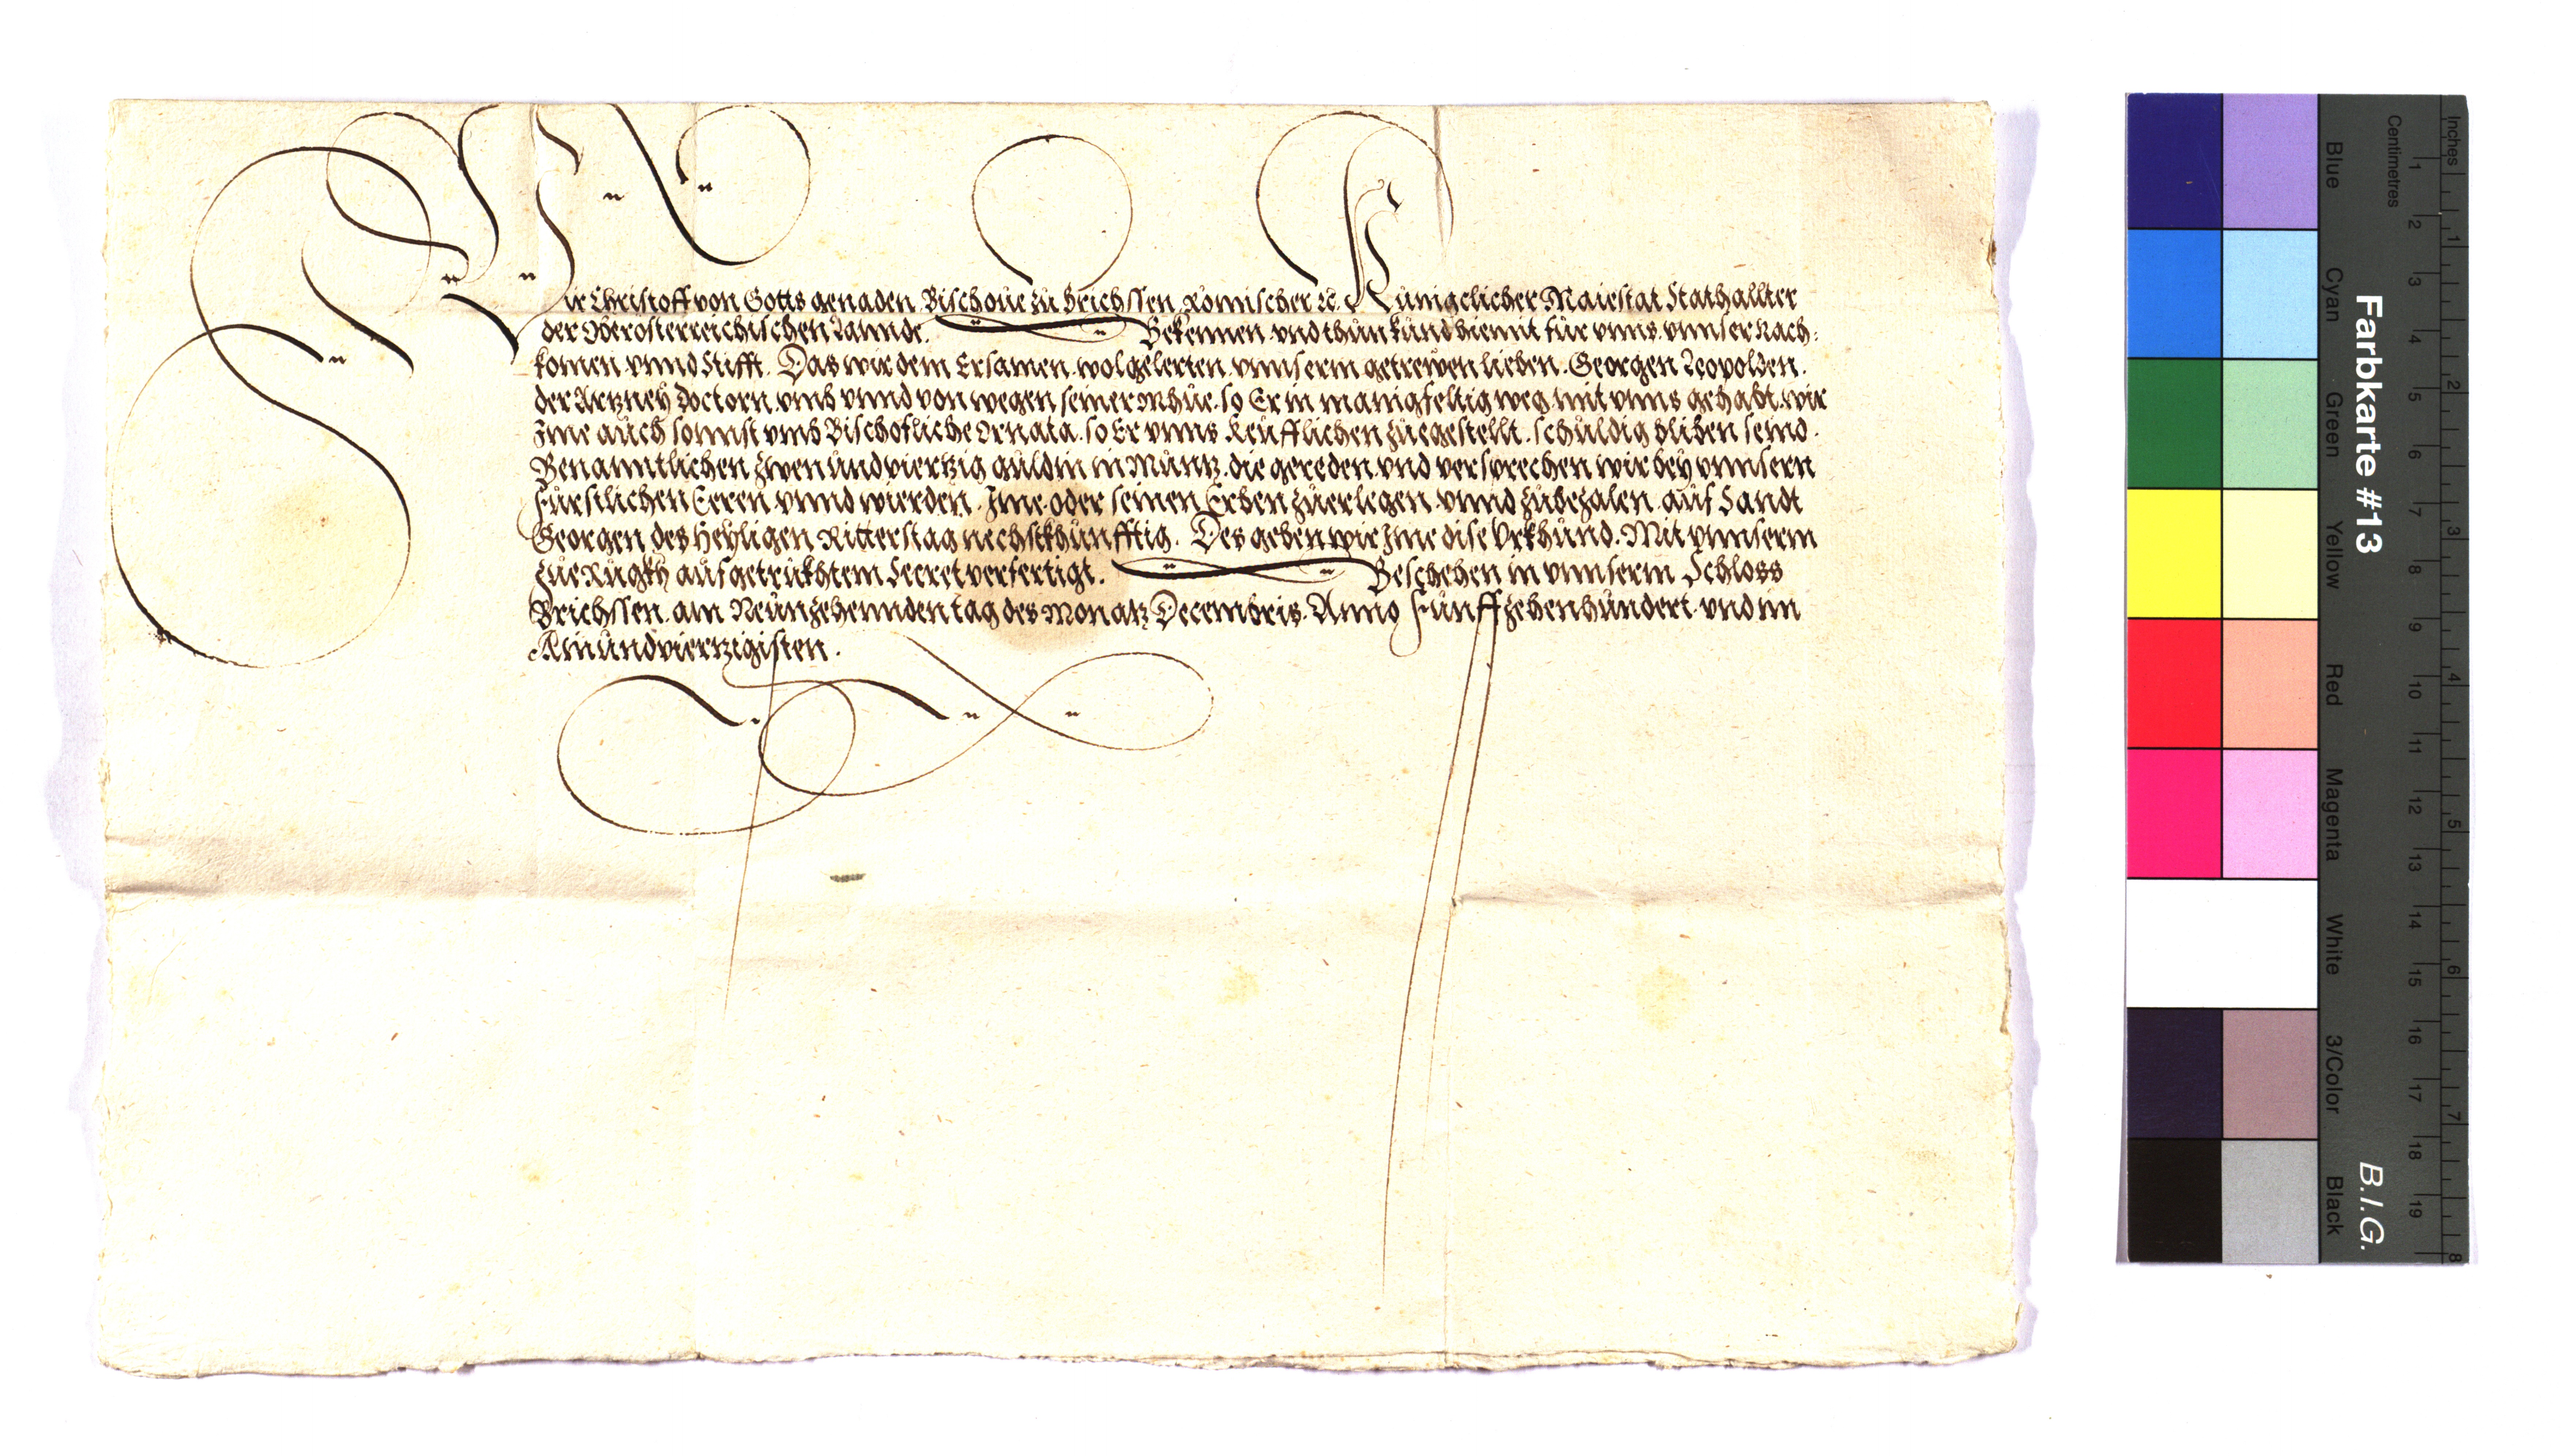 Wir Christoff von Gotts genaden Bischoue zu Brichssen Römischer ꝛc. Künigclicher Maiestat Stathallter
der Oberosterreichischen Lannde. Bekennen vnd thun kund hiemit für vnns vnnser Nach:
komen vnnd Stifft. Das wir dem Ersamen wolgelerten vnnserm getrewen lieben Georgen Leopolden.
der Artzney Doctorn vmb vnnd von wegen seiner Mhüe so Er in manigfeltig weg mit vnns gehabt wir
Ime auch sonnst vmb Bischofliche Ornata so Er vnns Keufflichen zuegestellt schuldig bliben seind.
Benanntlichen Zwenundviertzig guldin in Müntz die gereden vnd versprechen wir bey vnnsern
Fürstlichen Eeren vnnd wierden. Ime oder seinen Erben zuerlegen vnnd zubezalen auf Sandt
Georgen des Heyligen Ritters tag nechstkhünfftig. Des geben wir Ime dise Vrkhund. Mit vnnserm
zue Rugkh aufgetrukhtem Secret verfertigt. Beschehen in vnnserm Schloss
Brichssen am Neunzehennden tag des Monatz Decembris Anno Fünffzehenhundert vnd im
Ainundviertzigisten.
Farbkarte #13
B.I.G.
Inches
Centimetres
Blue
Cyan
Green
Yellow
Red
Magenta
White
3/Color
Black
1 2 3 4 5 6 7 8 9 10 11 12 13 14 15 16 17 18 19
1 2 3 4 5 6 7 8